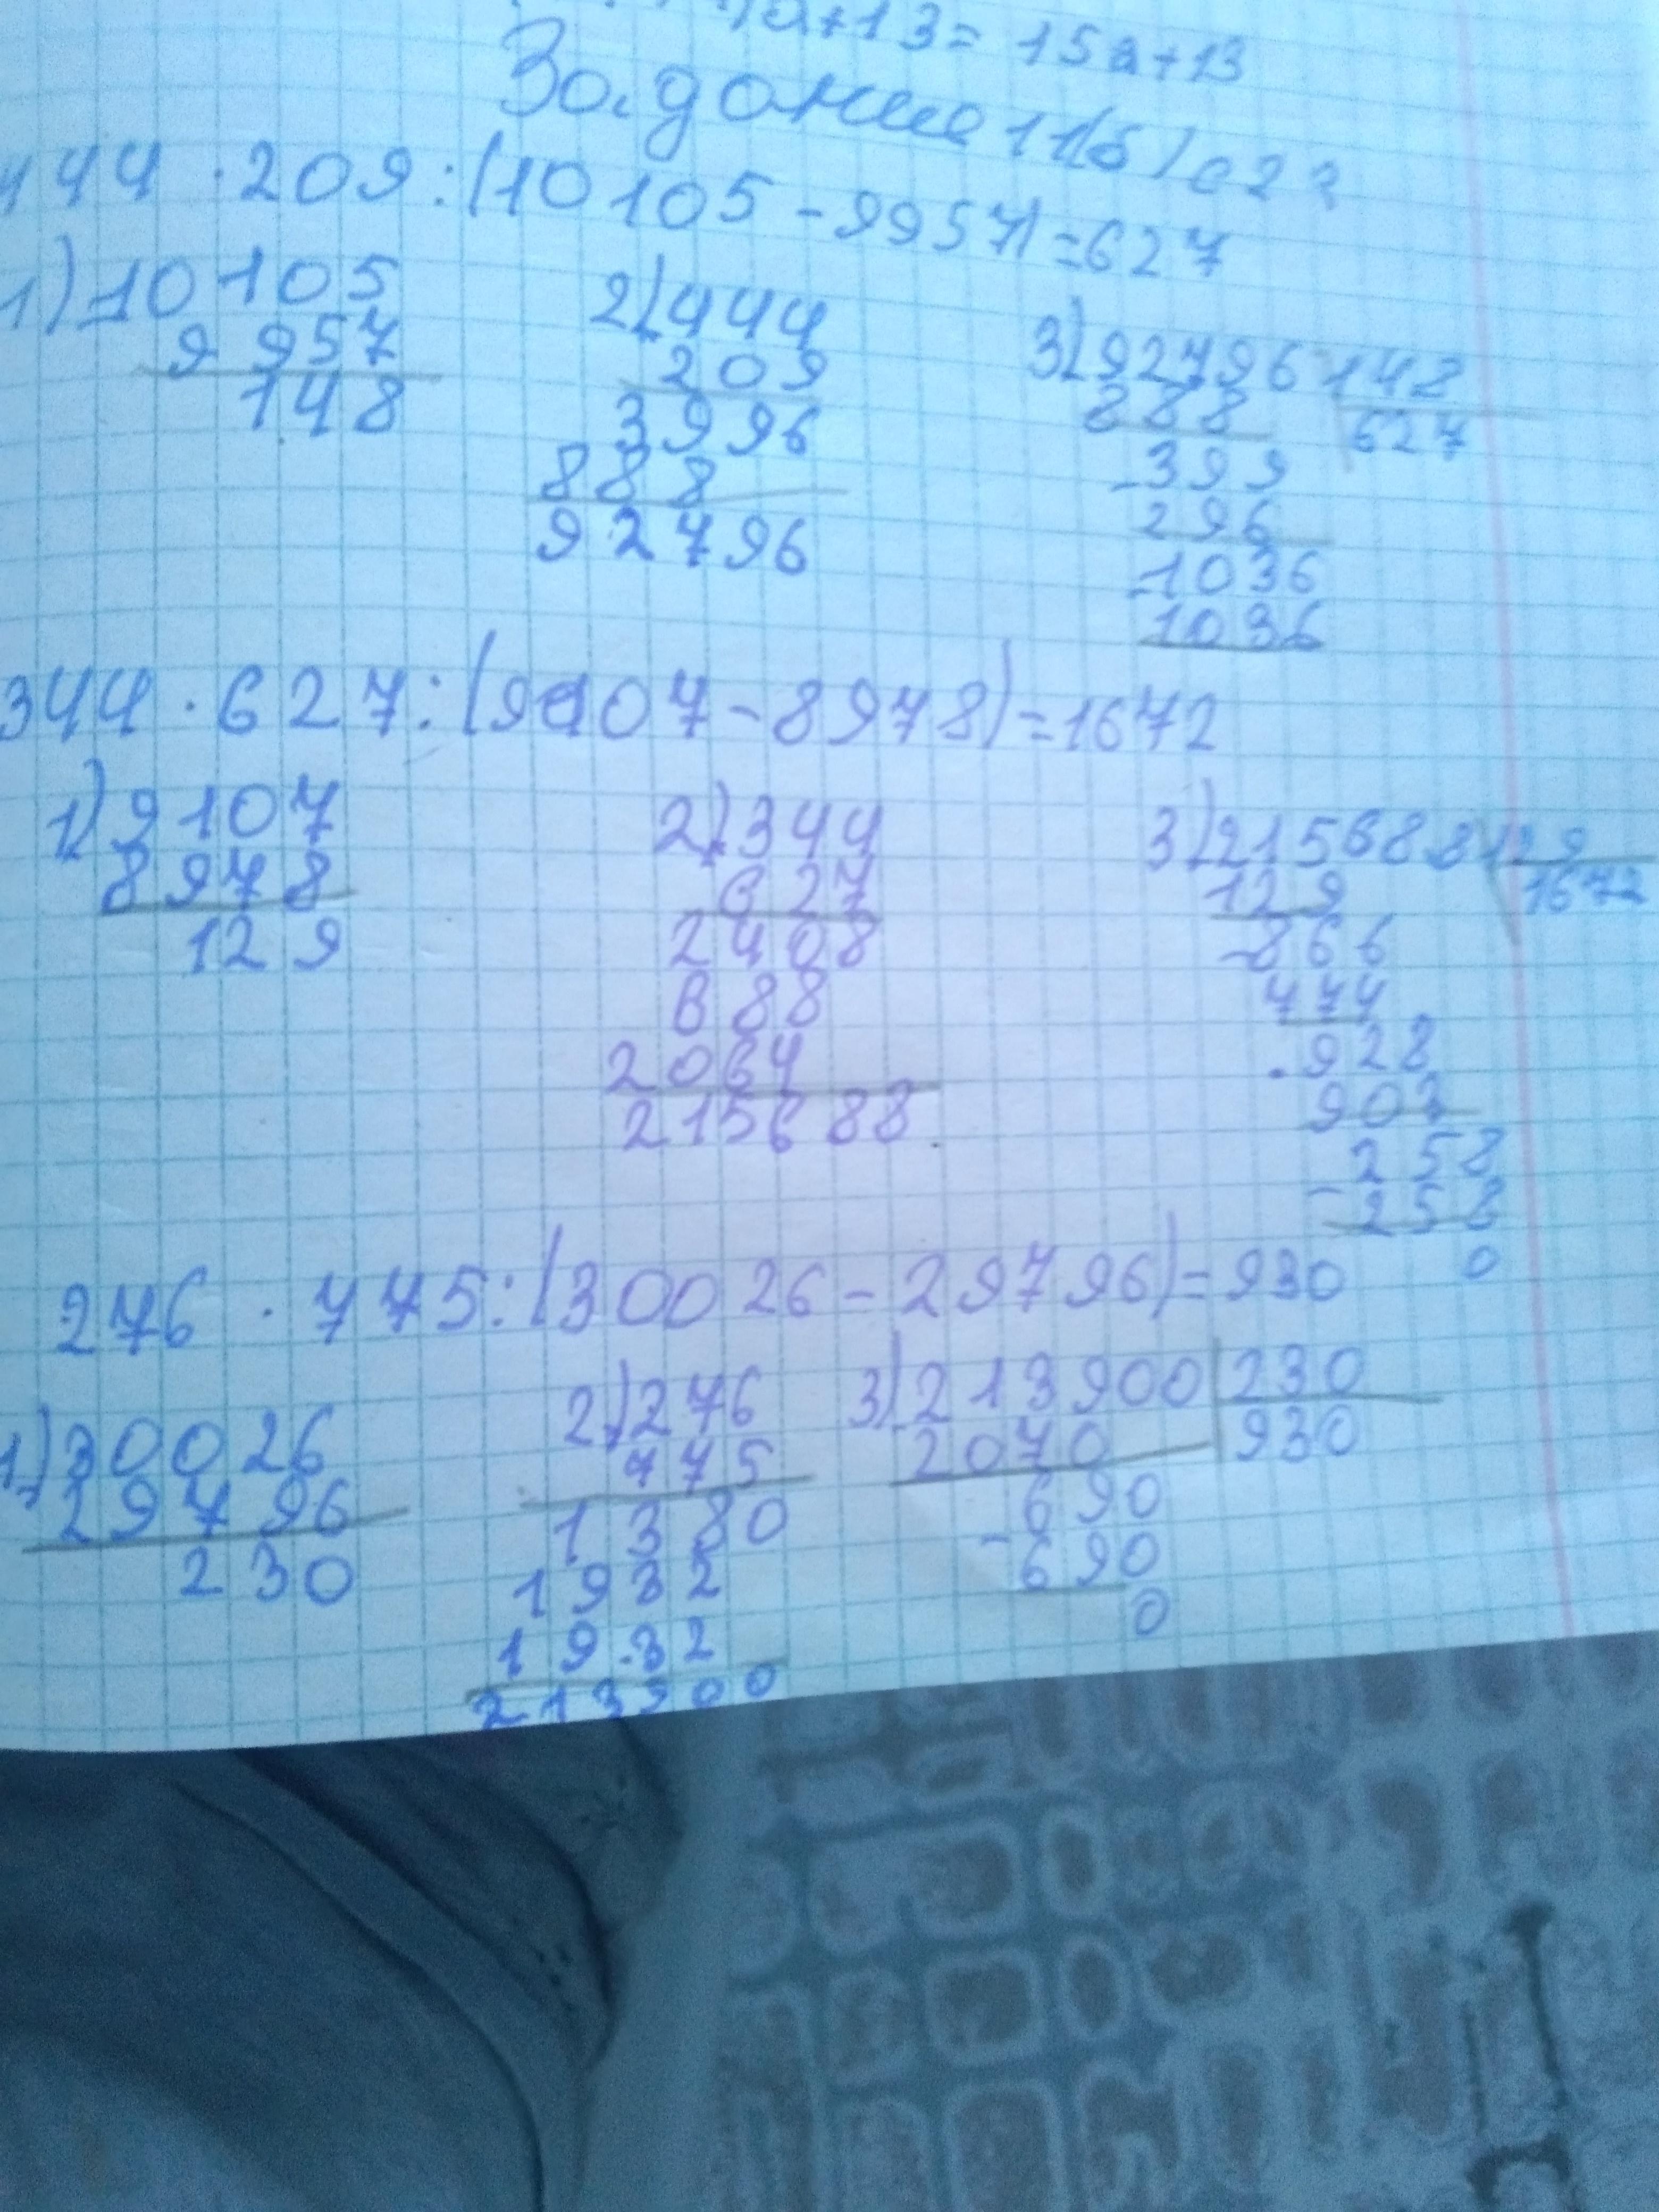 a+13=15a+13
Задание 11(б) с2
444 · 209 : (10105 - 9957) = 627
1) 10105
9957
148
2) 444
209
3996
888
92796
3) 92796 148
888 627
399
296
1036
1036
344 · 627 : (9107 - 8978) = 1672
1) 9107
8978
129
2) 344
627
2408
688
2064
215688
3) 215688 129
129 1672
866
774
928
903
258
258
0
276 · 775 : (30026 - 29796) = 930
1) 30026
29796
230
2) 276
775
1380
1932
1932
213900
3) 213900 230
2070 930
690
690
0